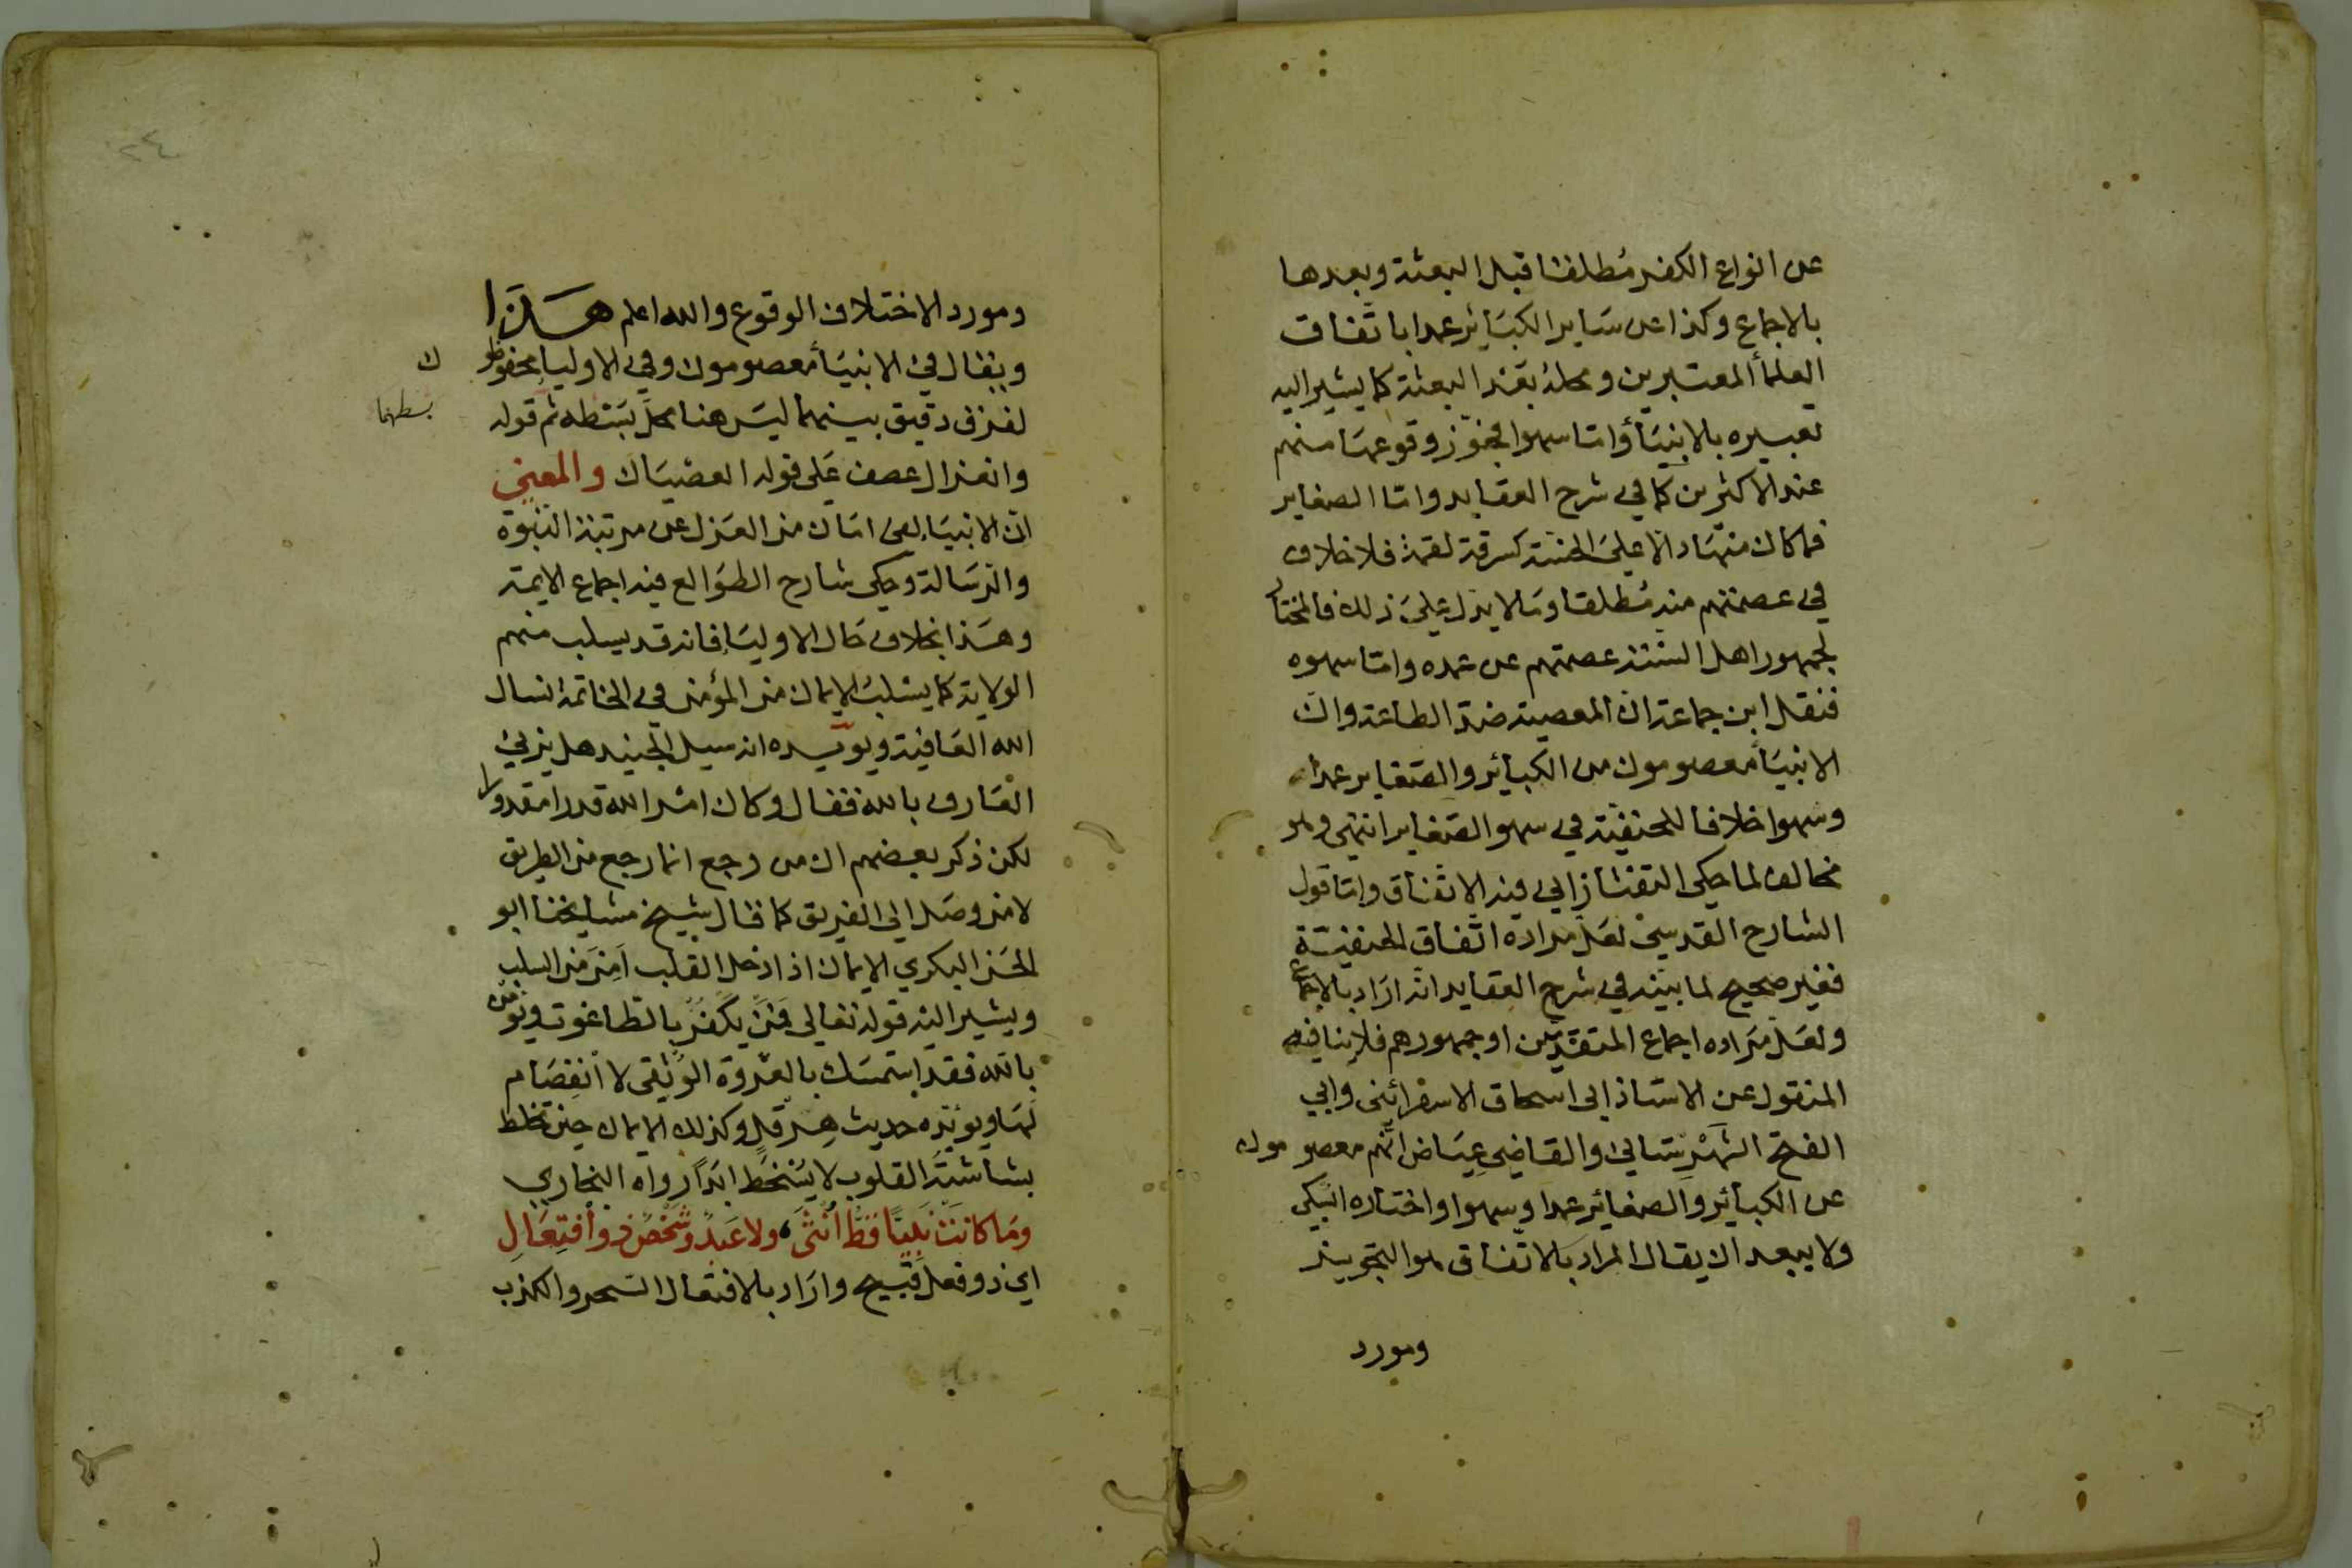 عن انواع الكفر مُطلقا قبل البعثة وبعدها
بالاجماع وكذا عن سَاير الكبَائر عمدا باتّفاق
العلمأ المعتبرين ومحلهُ بَعْد البعثة كما يشير اليه
تعبيره بالانبيَأ وامّا سهوا فجوّز وقوعهَا منهم
عند الاكثرين كما في شرح العقايد وامّا الصغاير
فما كان منهَا دالّا على الخسّة كسرقة لقمة فلا خلاف
في عصمتهم منه مُطلقا ومَا لا يدل على ذلك فالمختار
لجمهور اهل السّنّة عصمتهم عن عمده وامّا سهوه
فنقل ابن جماعة انّ المعصية ضدّ الطاعة وانّ
الانبيَأ معصومون من الكبائر والصّغاير عمدا
وسهوا خلافا للحنفيّة في سهو الصّغاير انتهى وهو
مخالف لما حكى التفتازاني فيه الاتّفاق وامّا قول
الشارح القدسي لعَل مراده اتّفاق الحنفيّة
فغير صحيح لما بيّنه في شرح العقايد انّه ارَاد بالاجماع
ولعَل مَراده اجماع المتقدّمين او جمهورهم فلا ينافيه
المنقول عن الاستاذ ابى اسحاق الاسفرائنى وابي
الفتح الشّهْرستاني والقاضي عِيَاض انّهم معصومون
عن الكبائر والصغائر عمدا وسهوا واختاره السّبكى
ولا يبعد ان يقال المراد بالاتّفاق هو التجويز
ومورد
٢٤
ومورد الاختلاف الوقوع والله اعلم هَـذَا
ويقال في الانبيَأ معصومون وفي الاوليا محفوظو
ن
لفرق دقيق بينهما ليسَ هنا محلّ بَسْطه ثم قوله
بسطها
وانعزال عطف عَلى قوله العصيَان والمعنى
انّ الانبيَا لفى امَان من العَزل عن مرتبة النّبُوّة
والرّسَالة وحكى شارح الطوَالع فيه اجماع الايمة
وهَذا بخلاف حَال الاوليَا فانه قد يسلب منهم
الولاية كما يسْلب الايمان من المؤمن في الخاتمة نسال
الله العَافية ويؤيّده انه سيل الجنيد هل يزني
العَارف بالله فقال وكان امْر الله قدرا مقدورا
لكن ذكر بعضهم ان من رجع انما رجع من الطريق
لا من وصَل الى الفريق كما قال شيخ مشايخنا ابو
الحَسَن البكري الايمان اذا دخل القلب اَمِنَ من السلب
ويشير اليْه قوله تعالى فمَنْ يَكْفُرْ بالطاغوت ويؤمن
باللّه فقد استمسَك بالعُرْوَة الوُثقى لا انْفِصَام
لهَا ويؤيّده حديث هِرَقل وكذلك الايمان حِين تخلط
بشاشته القلوب لا يَسْخَط ابَدًا رواه البخاري
ومَا كانت نَبِيًّا قَطُّ اُنْثَى ولا عَبدٌ وشَخْصٌ ذو افتِعَالِ
اي ذو فعل قبيح وارَاد بالافتعال السّحر والكذب